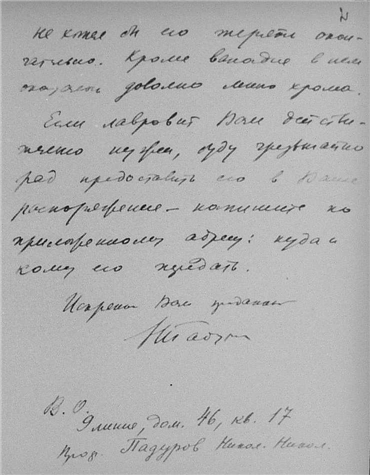 2
не хотел бы его терять окон-
чательно. Кроме ванадия в нем
оказалось довольно мало хрома.
Если лавровит Вам действи-
тельно нужен, буду чрезвычайно
рад предоставить его в Ваше
распоряжение – напишите по
приложенному адресу: куда и
кому его передать.
Искренно Вам преданный
В. О.
9 линия, дом. 46, кв. 17
Проф. Падуров Никол. Никол.